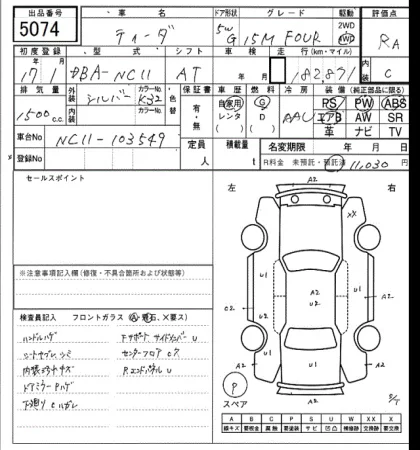 出品番号 車名 ドア形状 グレード 駆動 評価点
5074 ティーダ 5W G 15M FOUR 2WD 4WD RA
初度登録 型式 シフト 車検 走行(km・マイル) 内装
17年 1月 DBA-NC11 AT 年 月 182,871 C
排気量 外装 カラーNo. 色替 保証書 車歴 燃料 冷房 装備(純正部品に限る)
1500c.c. シルバー K32 カラーNo. 有・無 自家用 レンタ G D AAC PS PW ABS
エアB AW SR
革 ナビ TV
車台No NC11-103549 定員 積載量 名変期限 年 月 日
登録No 人 t R料金 未預託・預託済 11,030 円
セールスポイント
左 右
※注意事項記入欄(修復・不具合箇所および状態等)
検査員記入 フロントガラス(A、飛石、X要ス)
ハンドルハゲ Fサポート サイドメンバー U
シートヤブレ シミ センターフロア C7
内張キズ Rエンドパネル U
ドアミラー Pハゲ
下廻り Cハガレ
A2
XX
U1
A2
U2
U1
C2
U2
U1
A2
U1
A2
P
スペア
S/T
A B C P S U W X XX X
線キズ 要板金 腐蝕 要塗装 サビ 凹凸 補修跡 交換跡 要交換